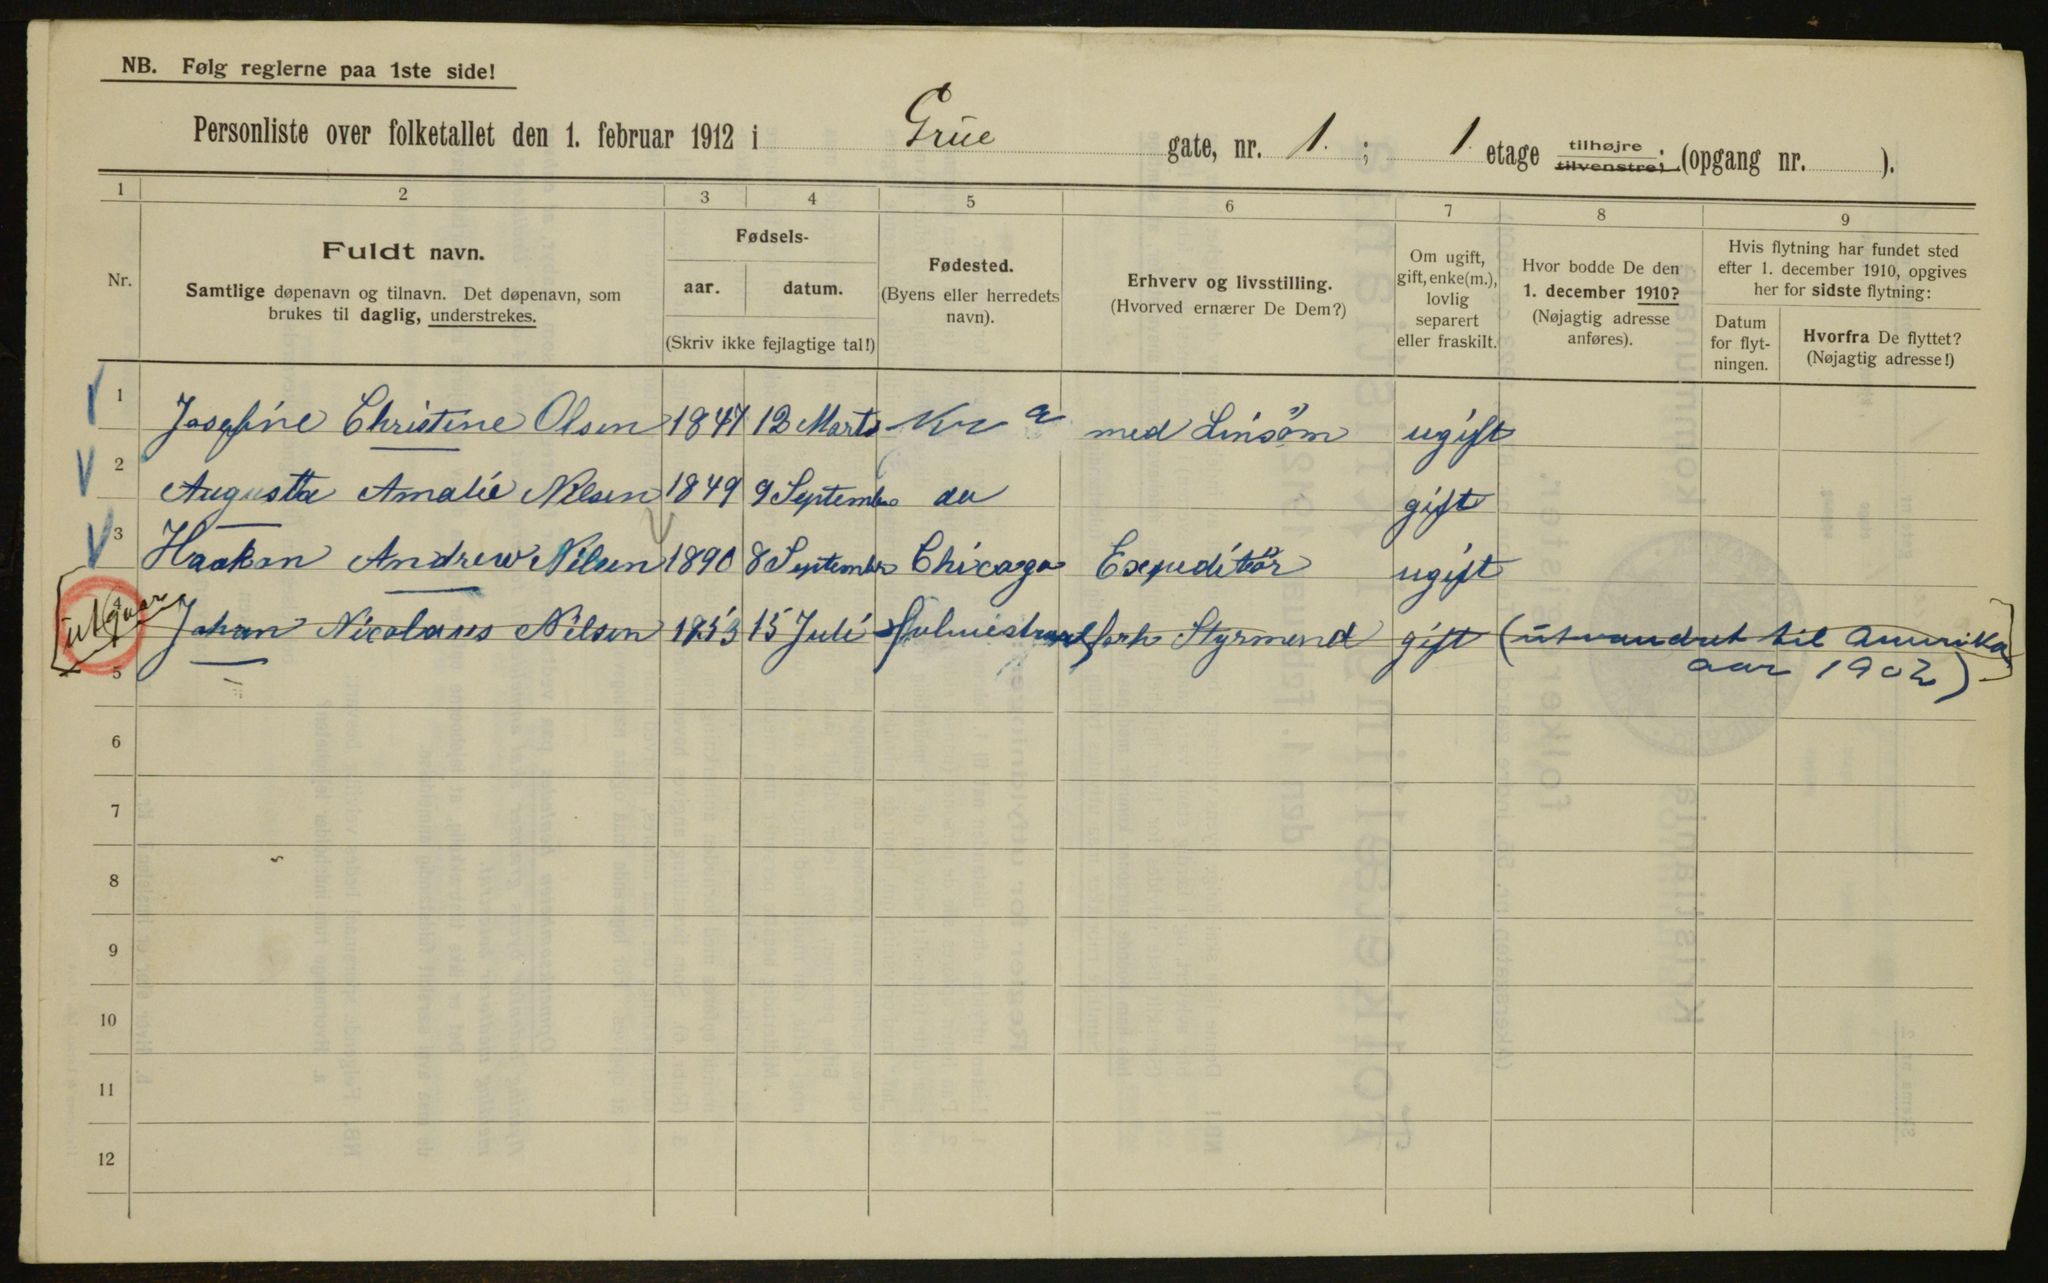 NB. Følg reglerne paa 1ste side!
Personliste over folketallet den 1. februar 1912 i Grüe gate, nr. 1. ; 1. etage tilhøjre tilvenstre; (opgang nr. ).
1 2 3 4 5 6 7 8 9
Nr.
Fuldt navn.
Samtlige døpenavn og tilnavn. Det døpenavn, som
brukes til daglig, understrekes.
Fødsels-
aar. datum.
(Skriv ikke fejlagtige tal!)
Fødested.
(Byens eller herredets
navn).
Erhverv og livsstilling.
(Hvorved ernærer De Dem?)
Om ugift,
gift, enke(m.),
lovlig
separert
eller fraskilt.
Hvor bodde De den
1. december 1910?
(Nøjagtig adresse
anføres).
Hvis flytning har fundet sted
efter 1. december 1910, opgives
her for sidste flytning:
Datum
for flyt-
ningen.
Hvorfra De flyttet?
(Nøjagtig adresse!)
1 Josefine Christine Olsen 1847 12 Marts Kra med Linsöm ugift
2 Augusta Amalie Nilsen 1849 9 September do gift
3 Haakon Andrew Nilsen 1890 8 September Chicago Expeditör ugift
4 utgaar Johan Nicolaus Nilsen 1853 15 Juli Holmestrand forh Styrmend gift (utvandret til Amerika
5 aar 1902)
6
7
8
9
10
11
12